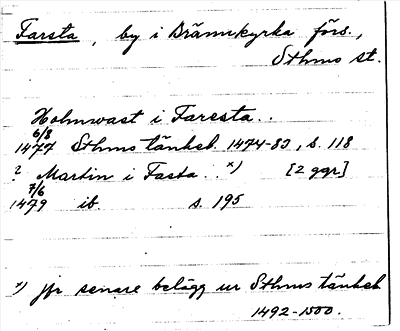 Farsta, by i Brännkyrka förs.,
Sthms st.
Holmwast i Faresta..
6/8
1477 Sthms tänkeb. 1474-83, s. 118
? Martin i Fasta..x) [2 ggr]
7/6
1479 ib. s. 195
x) jfr senare belägg ur Sthms tänkeb
1492-1500.